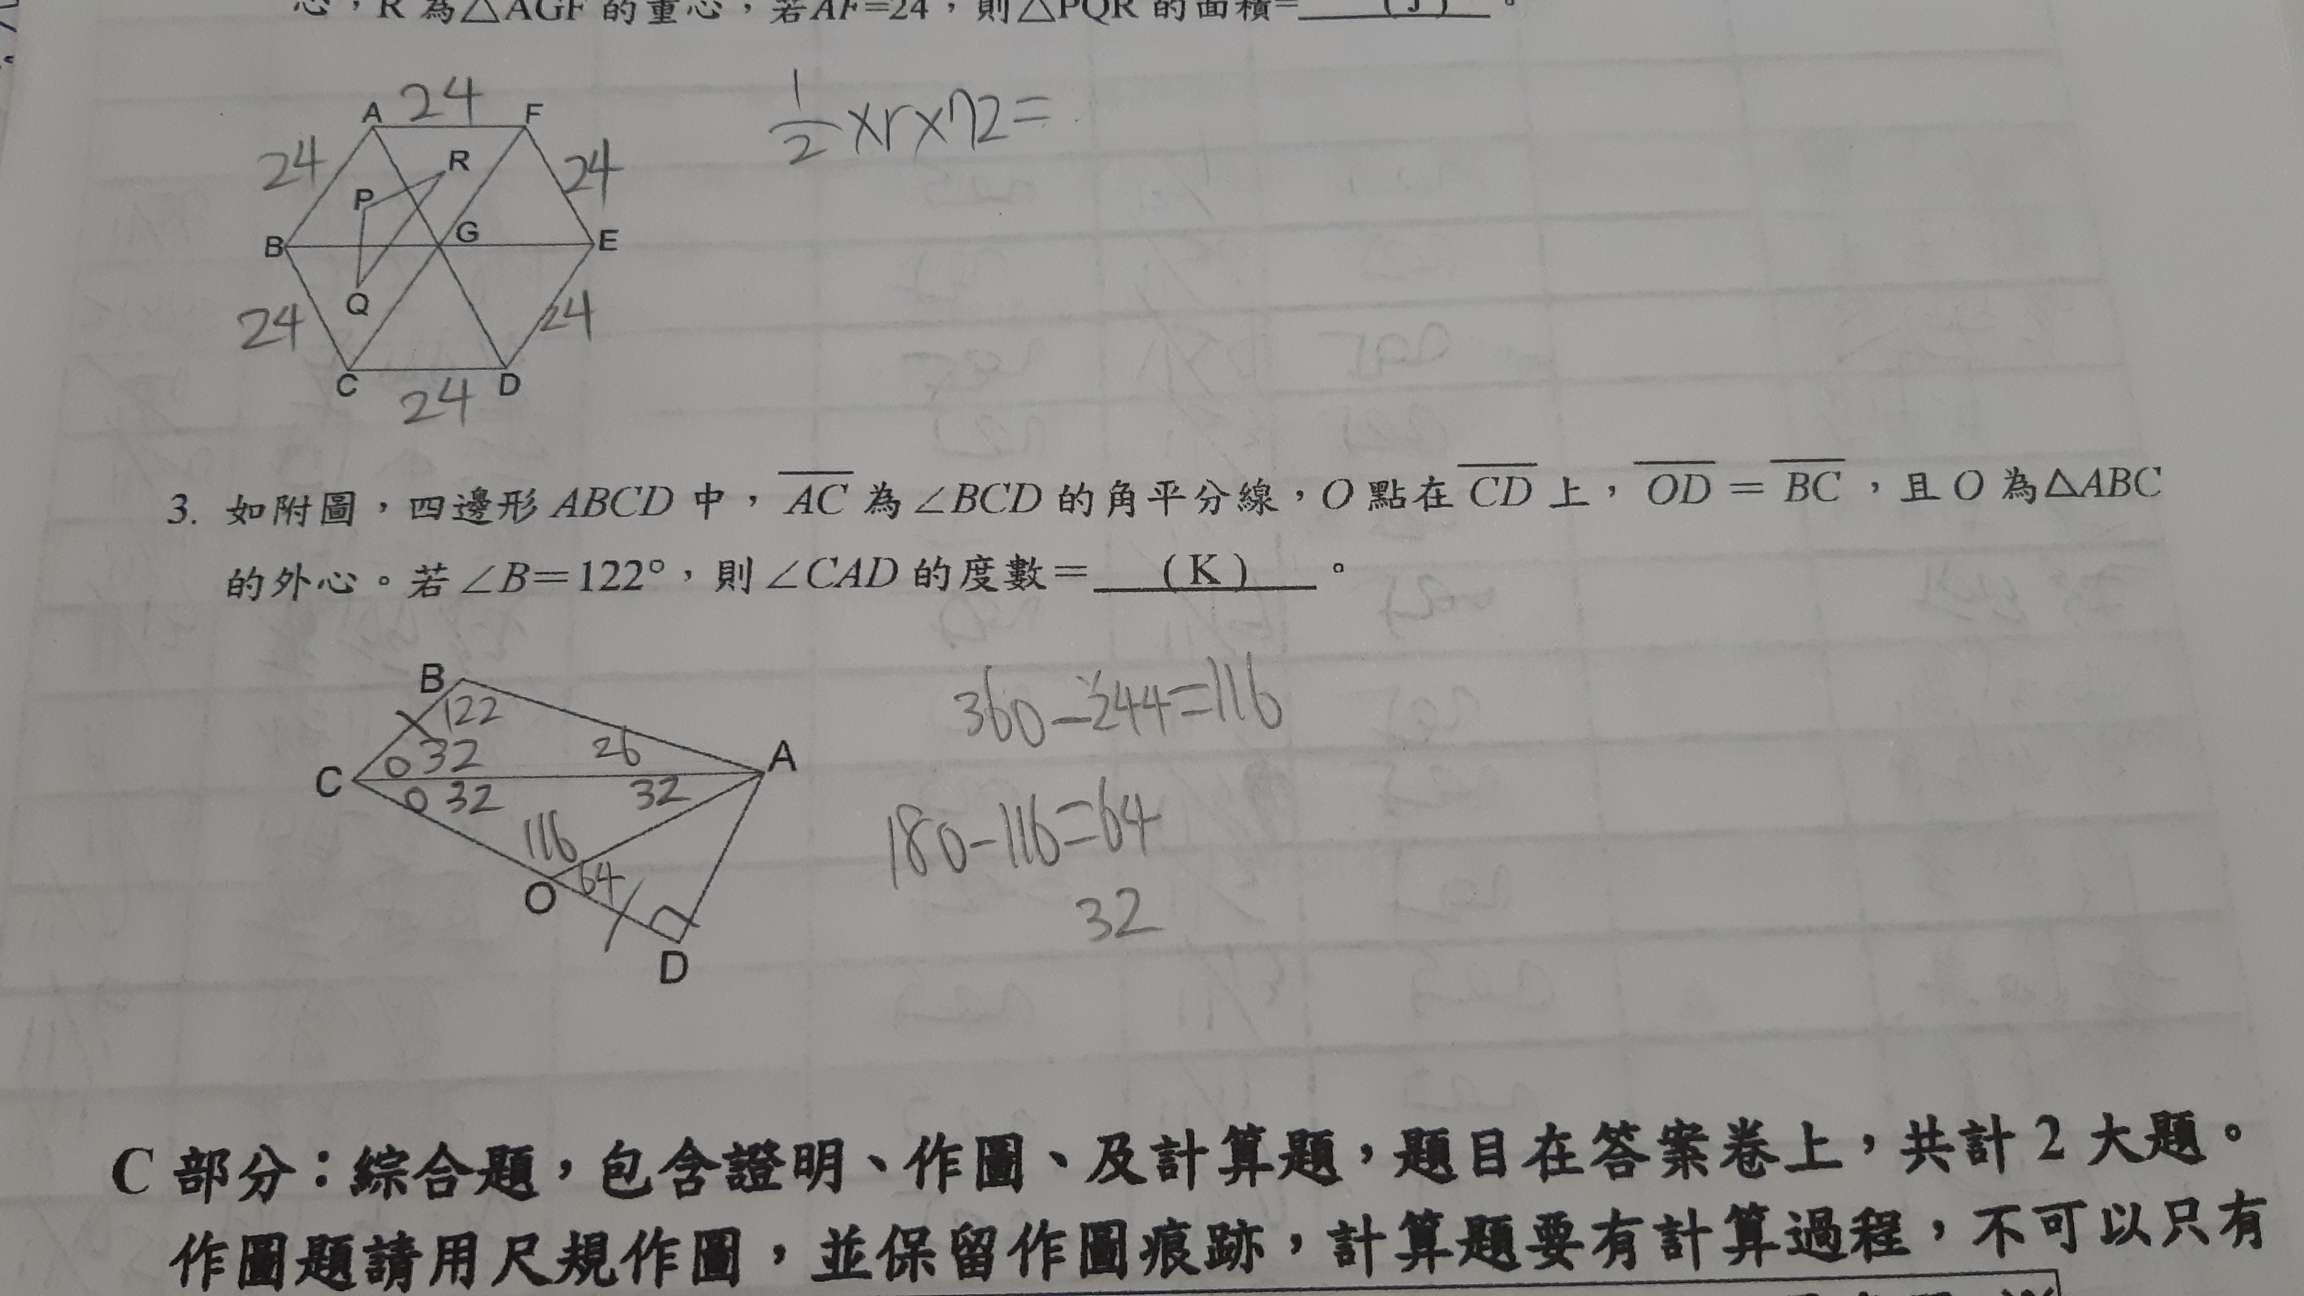 心，R 為△AGF 的重心，若AF=24，則△PQR 的面積=　(J)　。
24
A F
24 24
R
P
B G E
Q
24 24
C D
24
1/2×r×72=
3. 如附圖，四邊形 ABCD 中，AC 為∠BCD 的角平分線，O 點在 CD 上，OD = BC，且 O 為△ABC
的外心。若∠B=122°，則∠CAD 的度數=　(K)　。
B
122
C 32 26 A
32 32
116
O 64
D
360-244=116
180-116=64
32
C 部分：綜合題，包含證明、作圖、及計算題，題目在答案卷上，共計 2 大題。
作圖題請用尺規作圖，並保留作圖痕跡，計算題要有計算過程，不可以只有